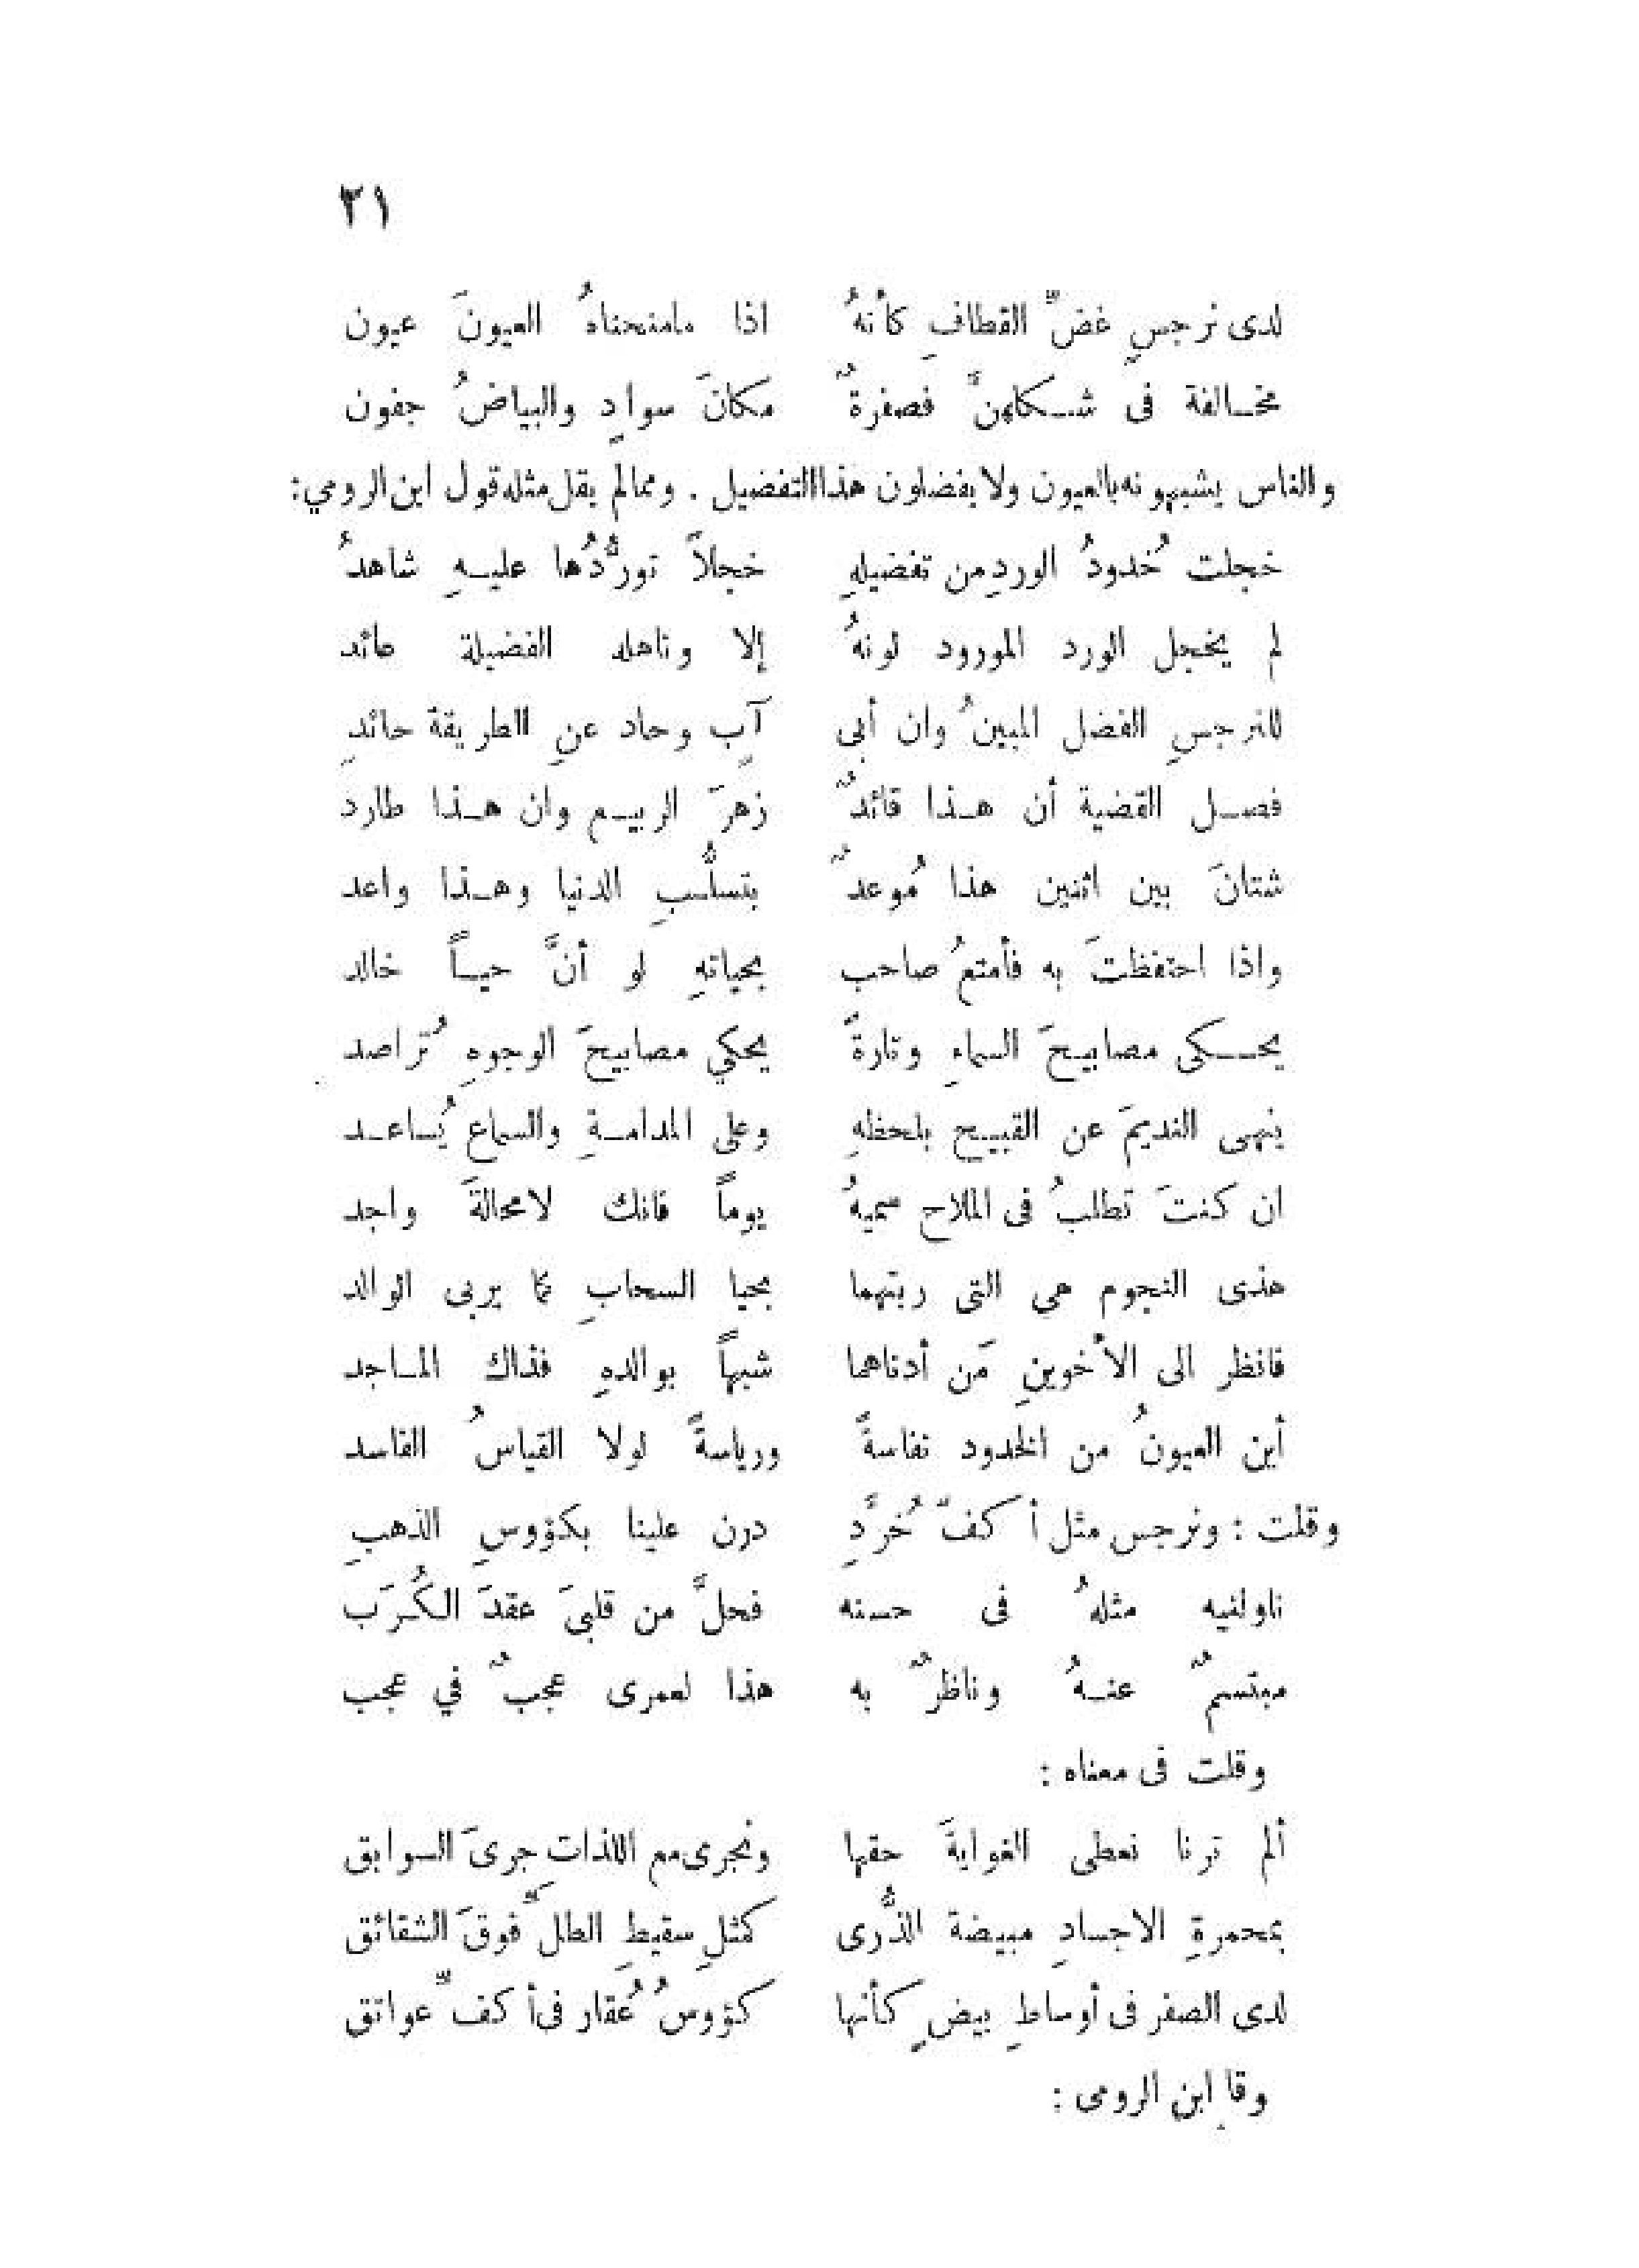 ٣١
لدى نرجسٍ غضِّ القطافِ كأنهُ اذا مامنحناهُ العيونَ عيون
مخـالفة فى شـكلهنَّ فصفرةٌ مكانَ سوادٍ والبياضُ جفون
والناس يشبهونه بالعيون ولا يفضلون هذا التفضيل . ومما لم يقل مثله قول ابن الرومي:
خجلت خُدودُ الوردِ من تفضيلهِ خجلاً تورُّدُها عليـهِ شاهدُ
لم يخجل الورد المورود لونهُ إلا وناهله الفضيلة عاند
للنرجسِ الفضل المبينُ وان أبى آبٍ وحاد عنِ الطريقة حائدِ
فصـل القضية أن هـذا قائدٌ زهرَ الربيـع وان هـذا طارد
شتانَ بين اثنين هذا مُوعدٌ بتسلُّـبِ الدنيا وهـذا واعد
واذا احتفظتَ به فأمتعُ صاحب بحياتهِ لو أنَّ حيـاً خالد
يحـكى مصابيـحَ السماءِ وتارةً يحكي مصابيحَ الوجوهِ تُراصد
ينهى النديمَ عن القبيـح بلحظهِ وعلى المدامـةِ والسماع يُسـاعـد
ان كنتَ تطلبُ فى الملاح سميهُ يوماً فانك لامحالةَ واجد
هذى النجوم هي التى ربتهما بحيا السحابِ كما يربى الوالد
فانظر الى الأخوينِ مَن أدناهما شبهاً بوالدهِ فذاك المـاجد
أين العيونُ من الخدود نفاسةً ورياسةً لولا القياسُ الفاسد
وقلت : ونرجس مثل أكفِّ خُرَّدِ درن علينا بكؤوسِ الذهبِ
ناولنيه مثلهُ فى حسنه فحلَّ من قلبيَ عقدَ الكُرَب
مبتسمٌ عنـهُ وناظرٌ به هذا لعمرى عجبٌ في عجب
وقلت فى معناه :
ألم ترنا نعطى الغوايةَ حقها ونجرى مع اللذاتِ جرىَ السوابق
بمحمرةِ الاجسادِ مبيضة الذُّرى كمثلِ سقيطِ الطلِّ فوقَ الشقائق
لدى الصفر فى أوساطِ بيضٍ كأنها كؤوسُ عُقار فى أكفِّ عواتق
وقا ابن الرومى :